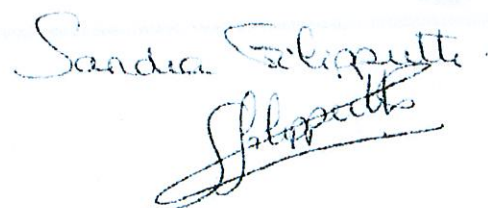 Sandra Filipputti
SFilipputti